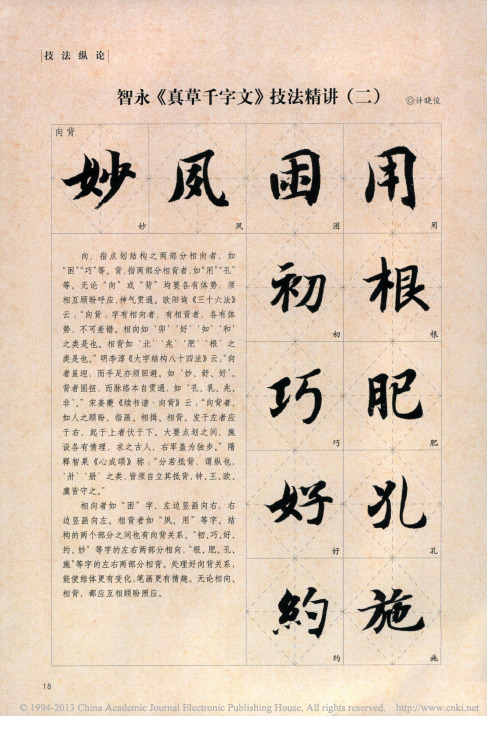 技法纵论
智永《真草千字文》技法精讲（二）
◎许晓俊
向背
妙 夙 困 用
妙 夙 困 用
初 根
初 根
巧 肥
巧 肥
好 孔
好 孔
約 施
约 施
向，指点划结构之两部分相向者，如
“困”“巧”等。背，指两部分相背者，如“用”“孔”
等。无论“向”或“背”均要各有体势，须
相互顾盼呼应，神气贯通。欧阳询《三十六法》
云：“向背：字有相向者，有相背者，各有体
势，不可差错。相向如‘卯’‘好’‘知’‘和’
之类是也。相背如‘北’‘兆’‘肥’‘根’之
类是也。”明李淳《大字结构八十四法》云：“向
者虽迎，而手足亦须回避。如‘妙、舒、好’。
背者固扭，而脉络本自贯通，如‘孔、乳、兆、
非’。”宋姜夔《续书谱·向背》云，“向背者，
如人之顾盼、指画、相揖、相背。发于左者应
于右，起于上者伏于下。大要点划之间，施
设各有情理，求之古人，右军盖为独步。”隋
释智果《心成颂》称：“分若抵背，谓纵也，
‘卅’‘册’之类，皆须自立其抵背，钟、王、欧、
虞皆守之。”
相向者如“困”字，左边竖画向右，右
边竖画向左。相背者如“夙、用”等字。结
构的两个部分之间也有向背关系。“初、巧、好、
约、妙”等字的左右两部分相向，“根、肥、孔、
施”等字的左右两部分相背。处理好向背关系，
能使结体更有变化，笔画更有情趣。无论相向、
相背，都应互相顾盼照应。
18
© 1994-2013 China Academic Journal Electronic Publishing House. All rights reserved. http://www.cnki.net